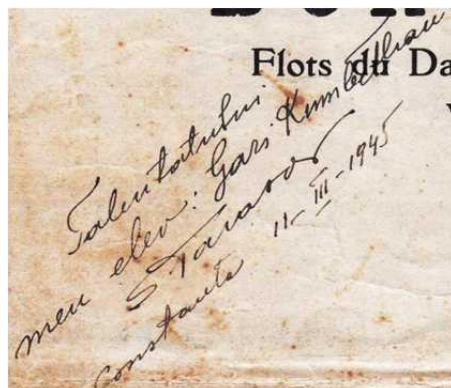 Flots du Da
Talentatului
meu elev: Gari
S. Tarasov
Constanta 11-III-1945